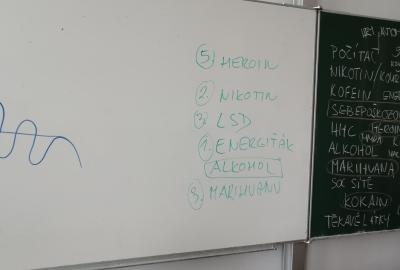 5. HEROIN
2. NIKOTIN
3. LSD
1. ENERGIŤÁK
ALKOHOL
MARIHUANU
POČÍTAČ
NIKOTIN/KOUŘ
KOFEIN ENE
SEBEPOŠKOZO
HHC HEROIN
ALKOHOL
MARIHUANA
SOC SÍTĚ
KOKAIN
TĚKAVÉ LÁTKY